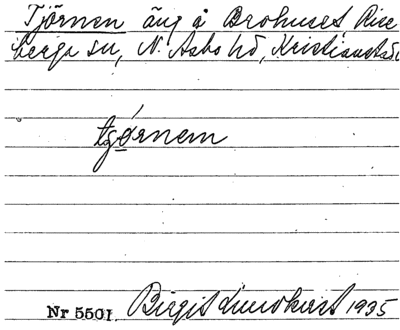 Tjörnen äng å Brohuset, Rise
berga sn, N. Åsbo hd, Kristianstads
tjörnem
Nr 5501. Birgit Lundkvist 1935